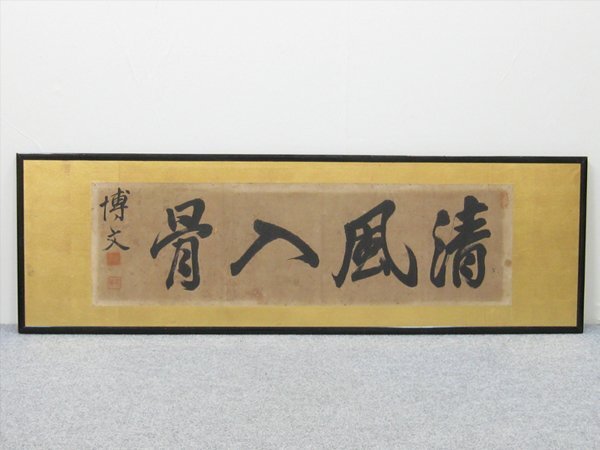 清風入骨
博文